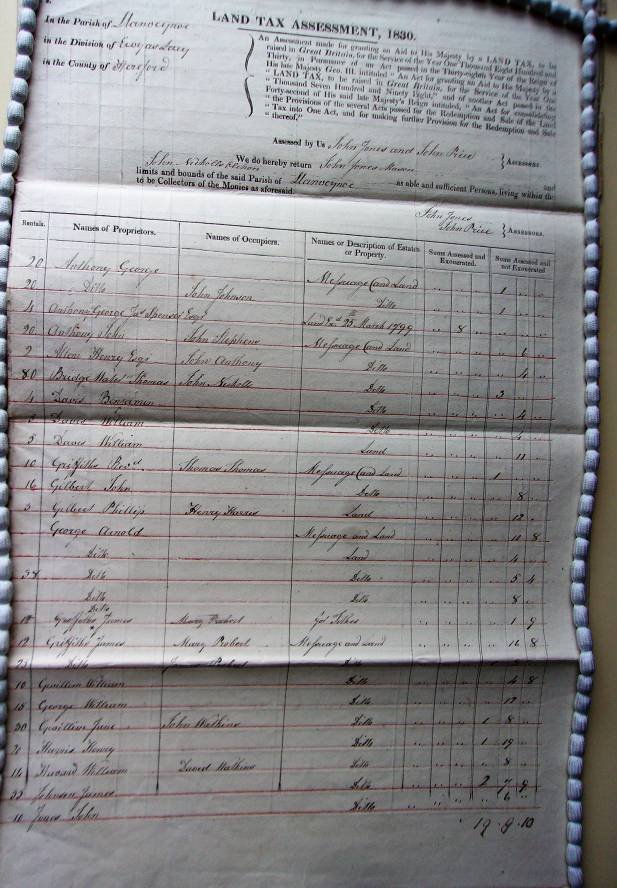 LAND TAX ASSESSMENT, 1830.
In the Parish of Llanveynoe
in the Division of Ewyas Lacy
in the County of Hereford
An Assessment made for granting an Aid to His Majesty by a LAND TAX, to be
raised in Great Britain, for the Service of the Year One Thousand Eight Hundred and
Thirty, in Pursuance of an Act passed in the Thirty-eighth Year of the Reign of
His late Majesty Geo. III. intituled "An Act for granting an Aid to His Majesty by a
"LAND TAX, to be raised in Great Britain, for the Service of the Year One
"Thousand Seven Hundred and Ninety Eight," and of another Act passed in the
Forty-second of His said late Majesty's Reign, intituled, "An Act for consolidating
"the Provisions of the several Acts passed for the Redemption and Sale of the Land
"Tax into One Act, and for making further Provision for the Redemption and Sale
"thereof,"
Assessed by Us John Jones and John Price } Assessors.
We do hereby return John Jones Mason
John Nicholls and
limits and bounds of the said Parish of Llanveynoe as able and sufficient Persons, living within the
to be Collectors of the Monies as aforesaid.
John Jones
John Price } Assessors.
Rentals. Names of Proprietors. Names of Occupiers. Names or Description of Estates or Property. Sums Assessed and Exonerated. Sums Assessed and not Exonerated
20 Anthony George Messuage and Land 1
20 Ditto John Johnson Ditto 1
4 Anthony George Jas Spencer Esqr Land Exd 25th March 1799 8
20 Anthony John John Stephens Messuage and Land 6
2 Allen Henry Esqr John Anthony Ditto 4
80 Bridgewater Thomas John Nicholls Ditto 3
4 Davis Benjamin Ditto 4
Davis William Ditto 4
5 Davis William Land 11
10 Griffiths Thomas Thomas Messuage and Land 1
16 Gilbert John Ditto 8
5 Gilbert Phillip Henry Harris Land 12
George Arnold Messuage and Land 10 8
Ditto Land 4
38 Ditto Ditto 5 4
Ditto Ditto 8
Ditto
18 Griffiths James Mary Probert for Tithes 1 9
12 Griffiths James Mary Probert Messuage and Land 16 8
Ditto Probert Ditto
10 Gwillim William Ditto 4 8
15 George William Ditto 12
20 Gwillim Jane John Watkins Ditto 1 8
Harris Henry Ditto 1 19
14 Havard William David Watkins Ditto 8
Johnson James Ditto 2 7 9
10 Jones John Ditto 6
19 . 9 . 10